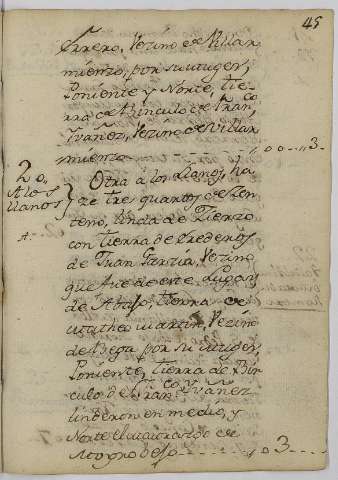 45
Errero, Vezino de Villar
mienzo, por su muger,
Poniente y Norte, tie-
rra de Binculo de Fran.co
Yvañez, Vezino de Villar
mienzo 0 0 3
20, Otra á los Llanos, ha-
A los
Llanos
ze tres quartos de Zen
teno, linda de Zierzo
A.
con tierra de erederos
de Juan Garzia, Vezino
que fue de este Lugar,
de Abajo, tierra de
Matheo Martin, Vezino
de Vega por su muger,
Poniente, tierra de Bin
culo de Fran.co Yvañez
linderon en medio, y
Norte el maiorazgo de
0 3